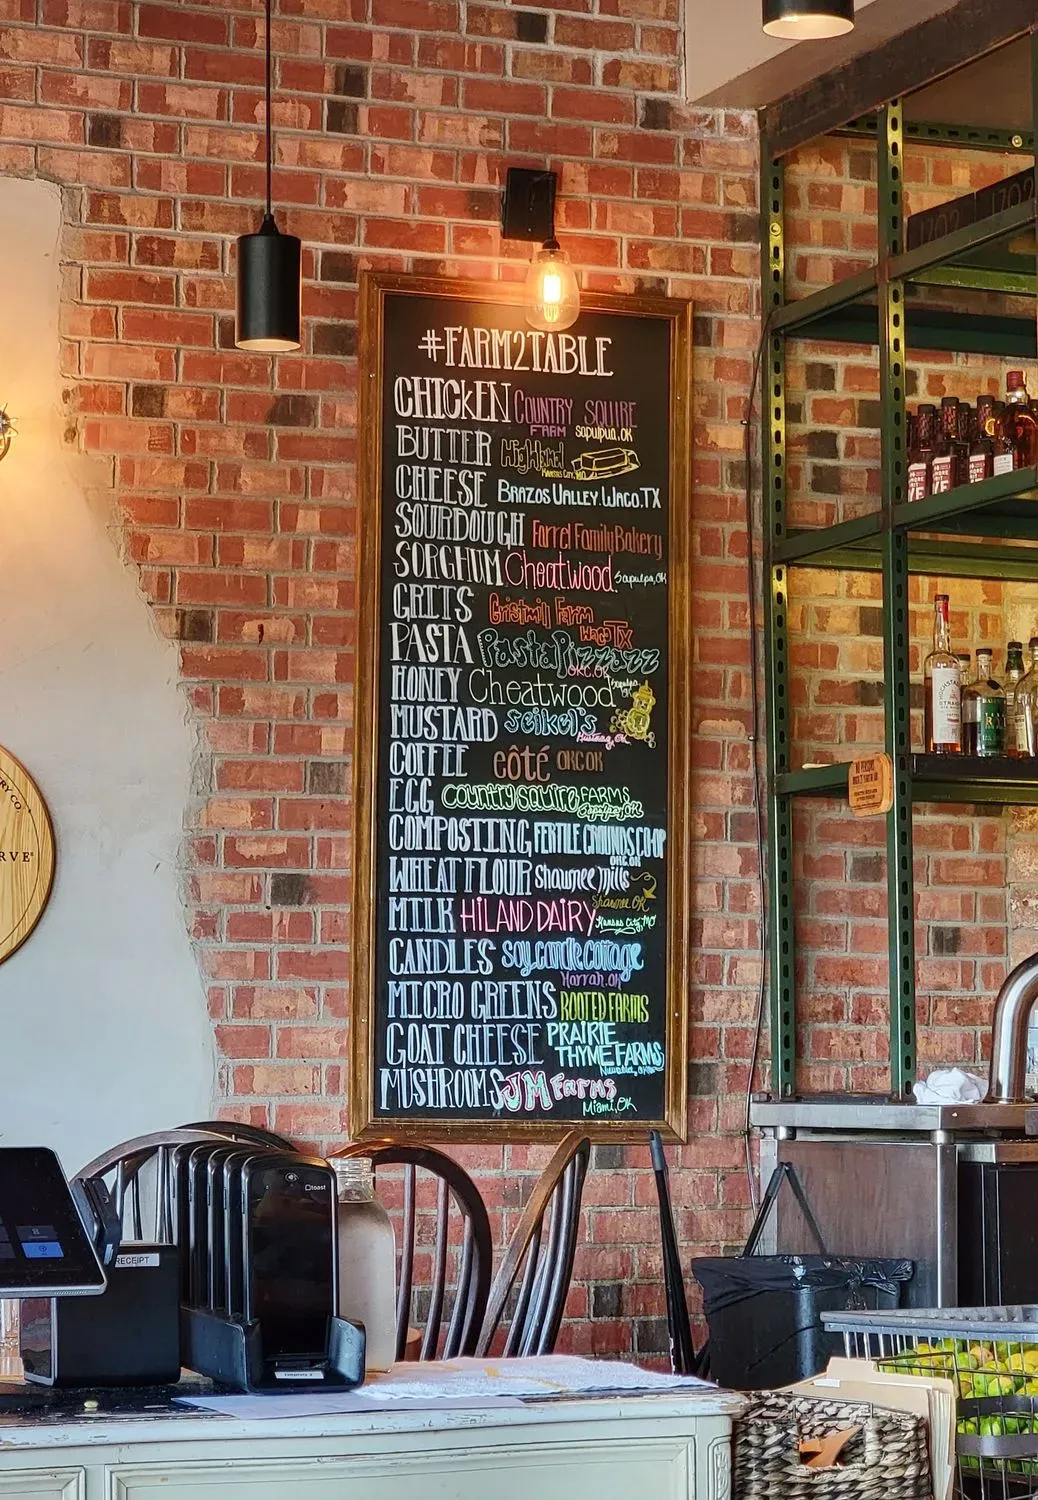 #FARM2TABLE
CHICKEN COUNTRY SQUIRE
FARM Sapulpua, OK
BUTTER Highland
KANSAS CITY, MO
CHEESE BRAZOS VALLEY. WACO, TX
SOURDOUGH Farrel Family Bakery
SORGHUM Cheatwood. Sapulpa, OK
GRITS Gristmill Farm
Waco TX
PASTA Pasta Pizzazz
OKC. OK
HONEY Cheatwood Sapulpa
OK
MUSTARD Seikel's
Mustang, OK
COFFEE eôté OKC OK
EGG Country Squire FARMS
Sapulpa, OK
COMPOSTING FERTILE GROUNDS CO-OP
OKC OK
WHEAT FLOUR Shawnee Mills
Shawnee OK
MILK HILAND DAIRY Kansas City, MO
CANDLES Soy candle cottage
Harrah, OK
MICRO GREENS ROOTED FARMS
GOAT CHEESE PRAIRIE
THYME FARMS
MUSHROOMS JM Farms
Miami, OK
1702 1702
RY CO.
RVE
RECEIPT
toast